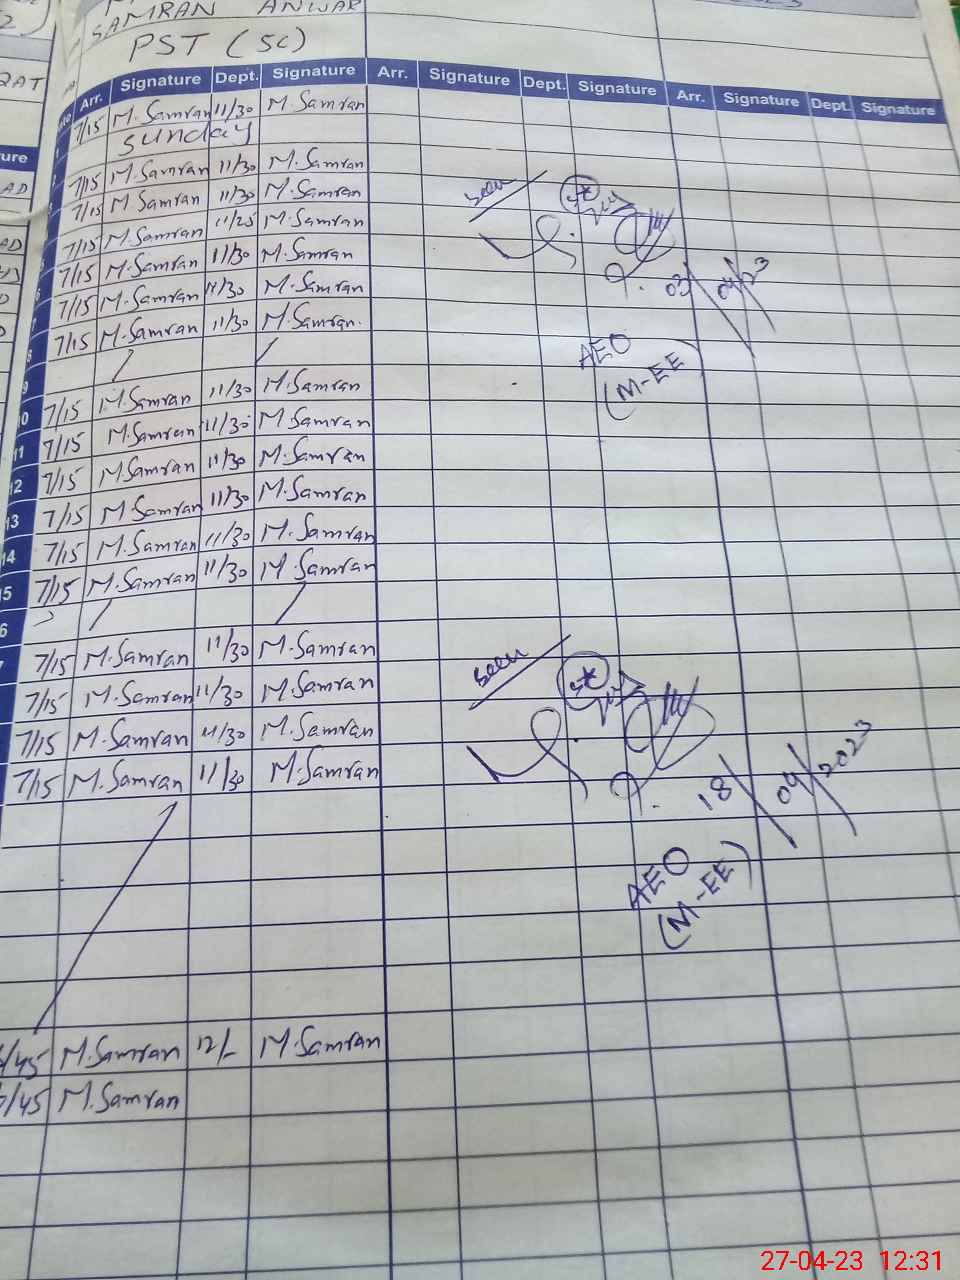 2)
SAMRAN ANWAR
PST (SC)
Arr. Signature Dept. Signature Arr. Signature Dept. Signature Arr. Signature Dept. Signature
7/15 M.Samran 11/30 M.Samran
Sunday
7/15 M.Samran 11/30 M.Samran
7/15 M.Samran 11/30 M.Samran
7/15 M.Samran 11/25 M.Samran
7/15 M.Samran 11/30 M.Samran
7/15 M.Samran 11/30 M.Samran
7/15 M.Samran 11/30 M.Samran
8
9
7/15 M.Samran 11/30 M.Samran
11 7/15 M.Samran 11/30 M.Samran
12 7/15 M.Samran 11/30 M.Samran
13 7/15 M.Samran 11/30 M.Samran
14 7/15 M.Samran 11/30 M.Samran
15 7/15 M.Samran 11/30 M.Samran
7/15 M.Samran 11/30 M.Samran
7/15 M.Samran 11/30 M.Samran
7/15 M.Samran 11/30 M.Samran
7/15 M.Samran 11/30 M.Samran
/45 M.Samran 12/- M.Samran
/45 M.Samran
seen
03/04/23
AEO
(M-EE
seen
18/04/2023
AEO
(M-EE)
27-04-23 12:31